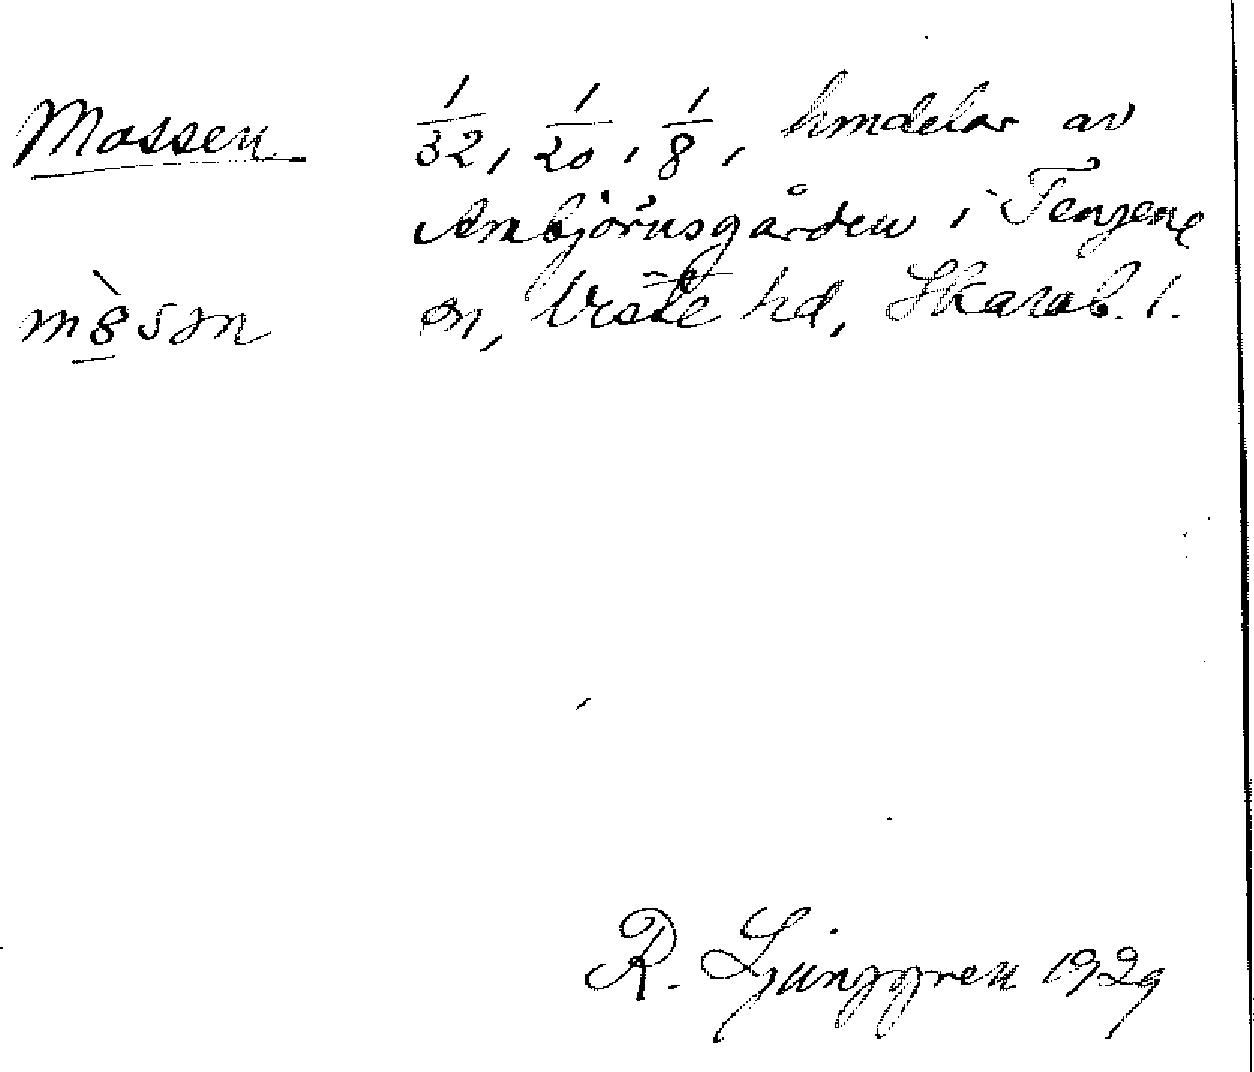 Mossen 1/32, 1/20, 1/8, hmdelar av
Ambjörnsgården i Tengene
sn, Viste hd, Skarab. l.
R. Ljunggren 1929